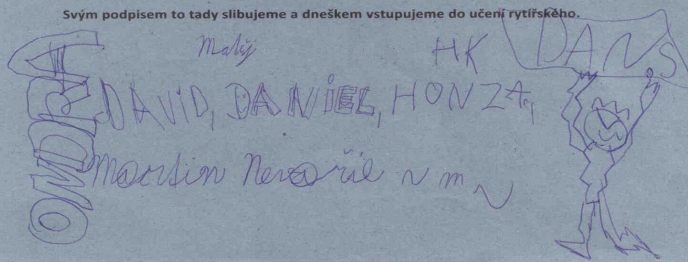 Svým podpisem to tady slibujeme a dneškem vstupujeme do učení rytířského.
Malý HK DANS
DAVID, DANIEL, HONZA,
Martin
ONDRA